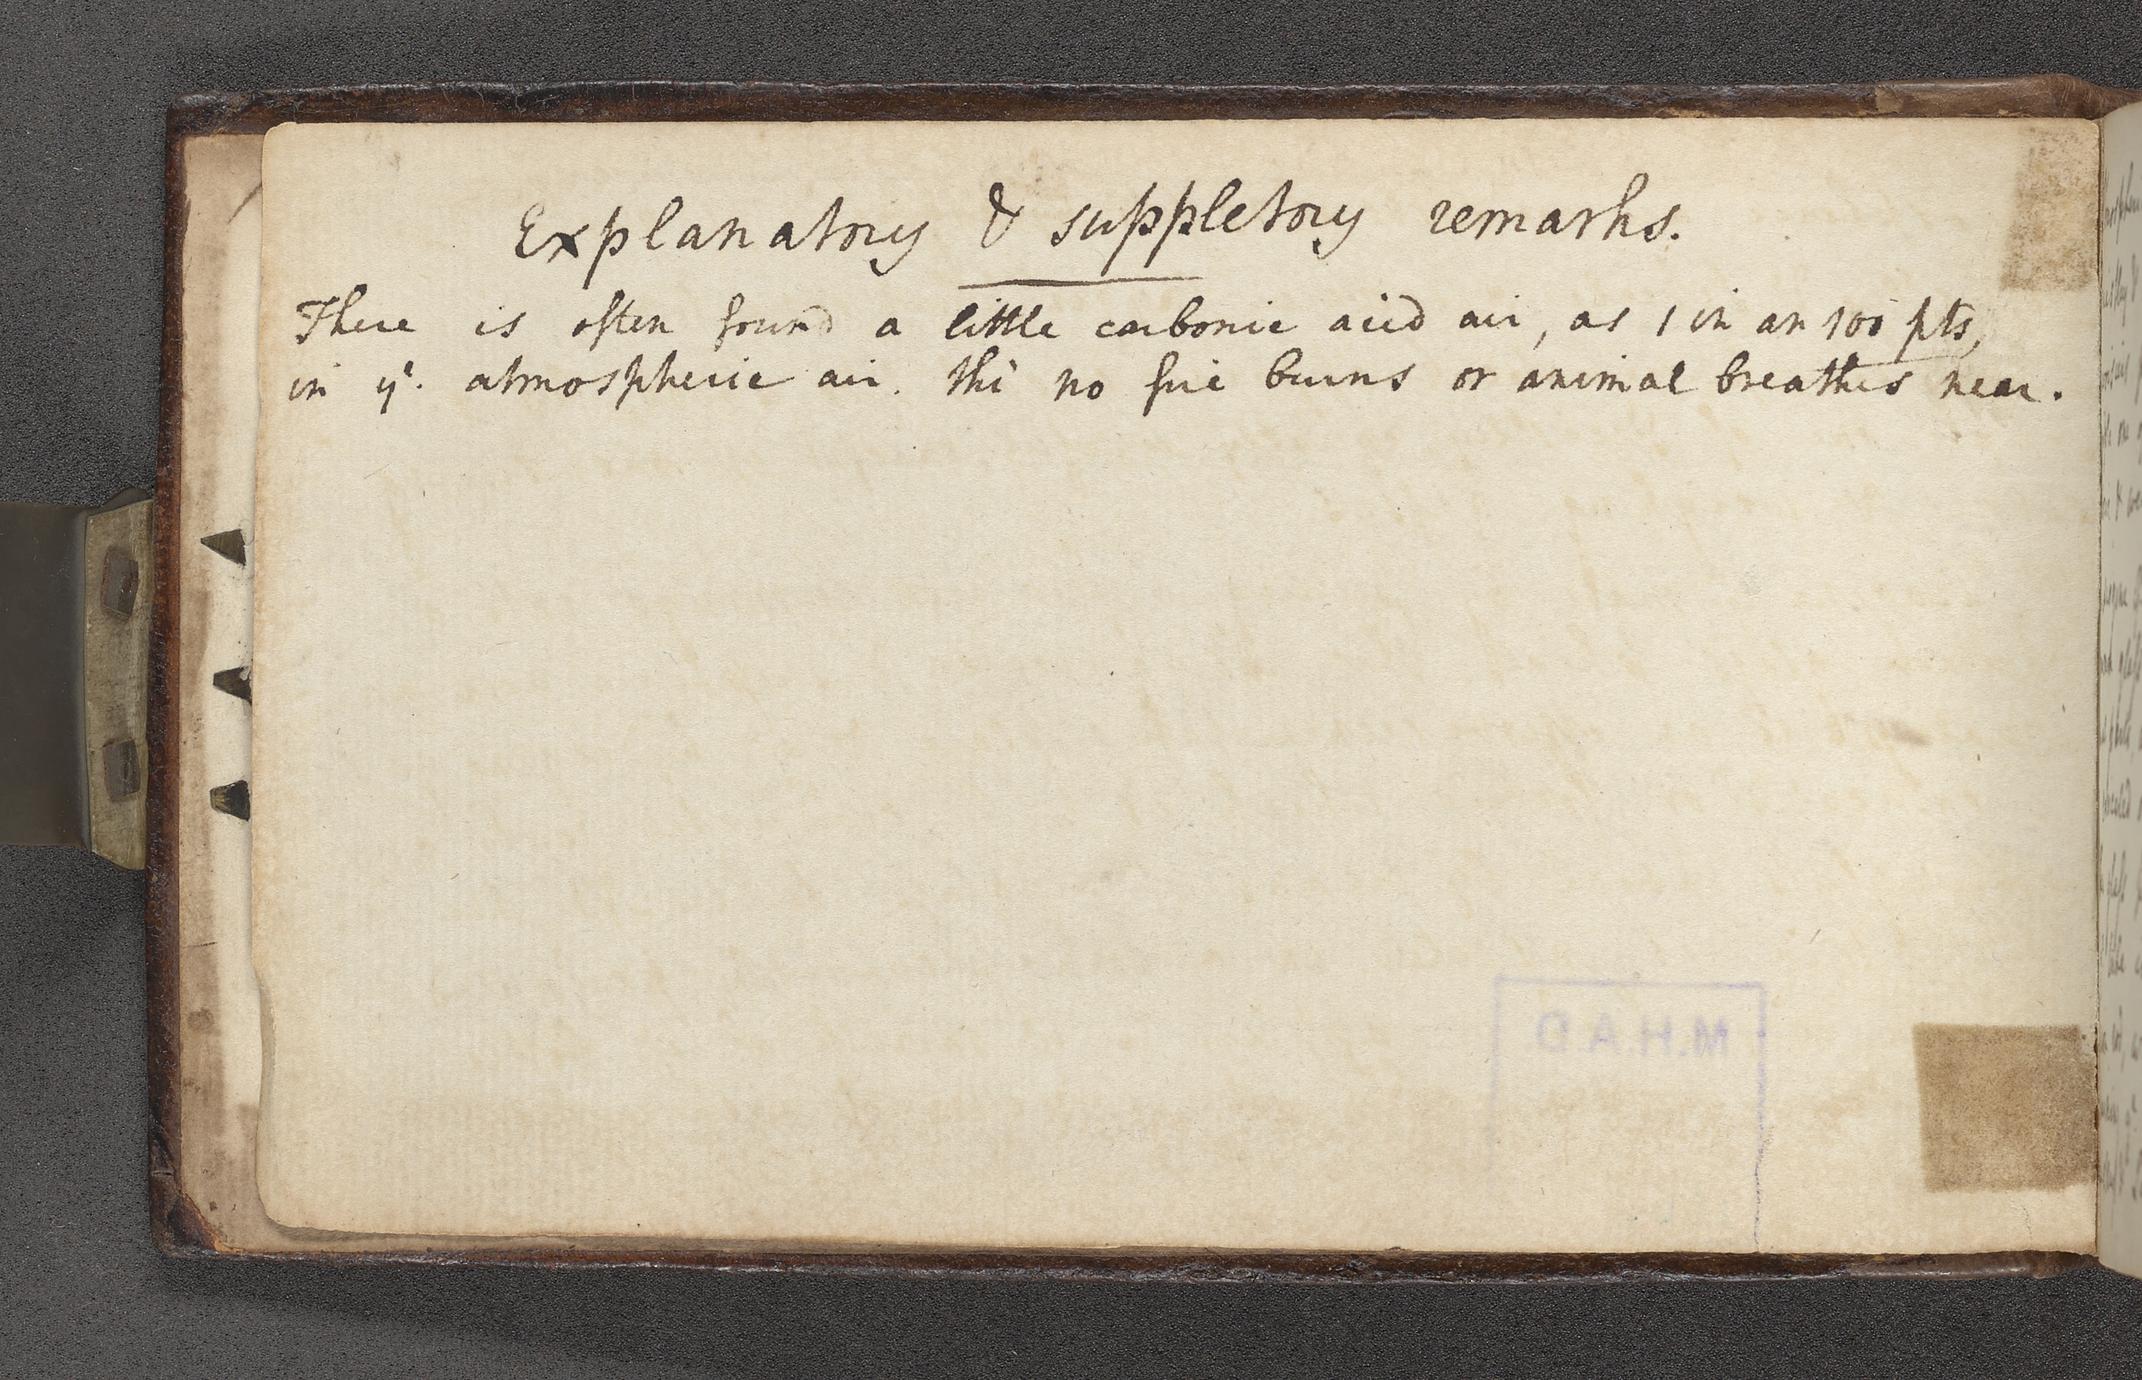 Explanatory & suppletory remarks.
There is often found a little carbonic acid air, as 1 in an 100 pts,
in ye. atmospheric air. tho' no fire burns or animal breathes near.
M.H.A.D